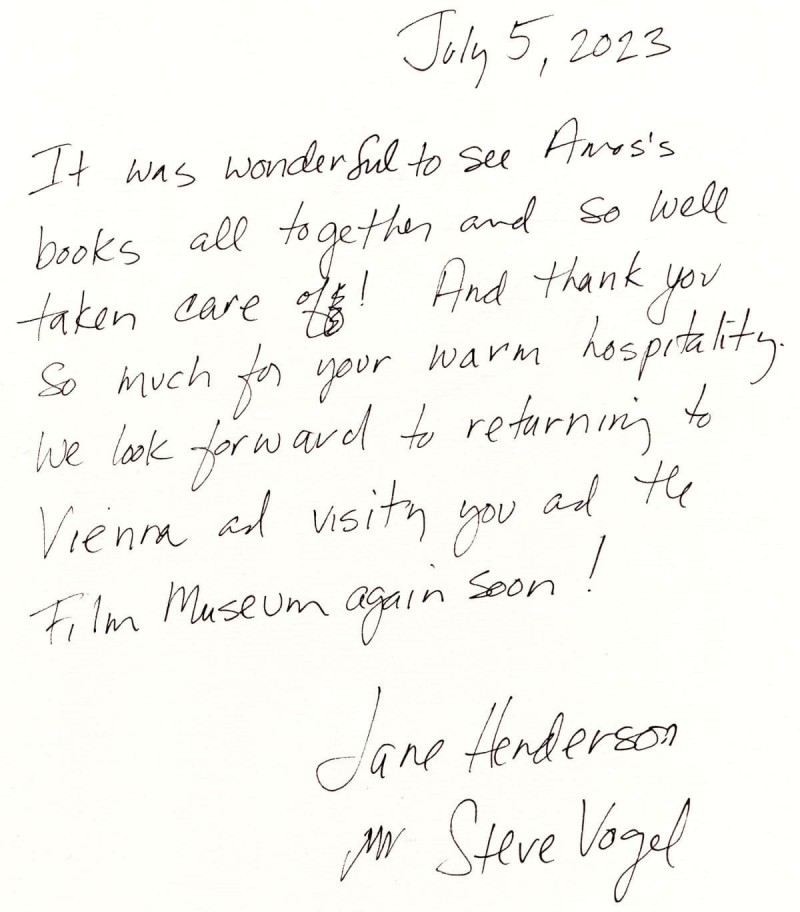 July 5, 2023
It was wonderful to see Amos's
books all together and so well
taken care of! And thank you
so much for your warm hospitality.
We look forward to returning to
Vienna and visiting you and the
Film Museum again soon!
Jane Henderson
Steve Vogel